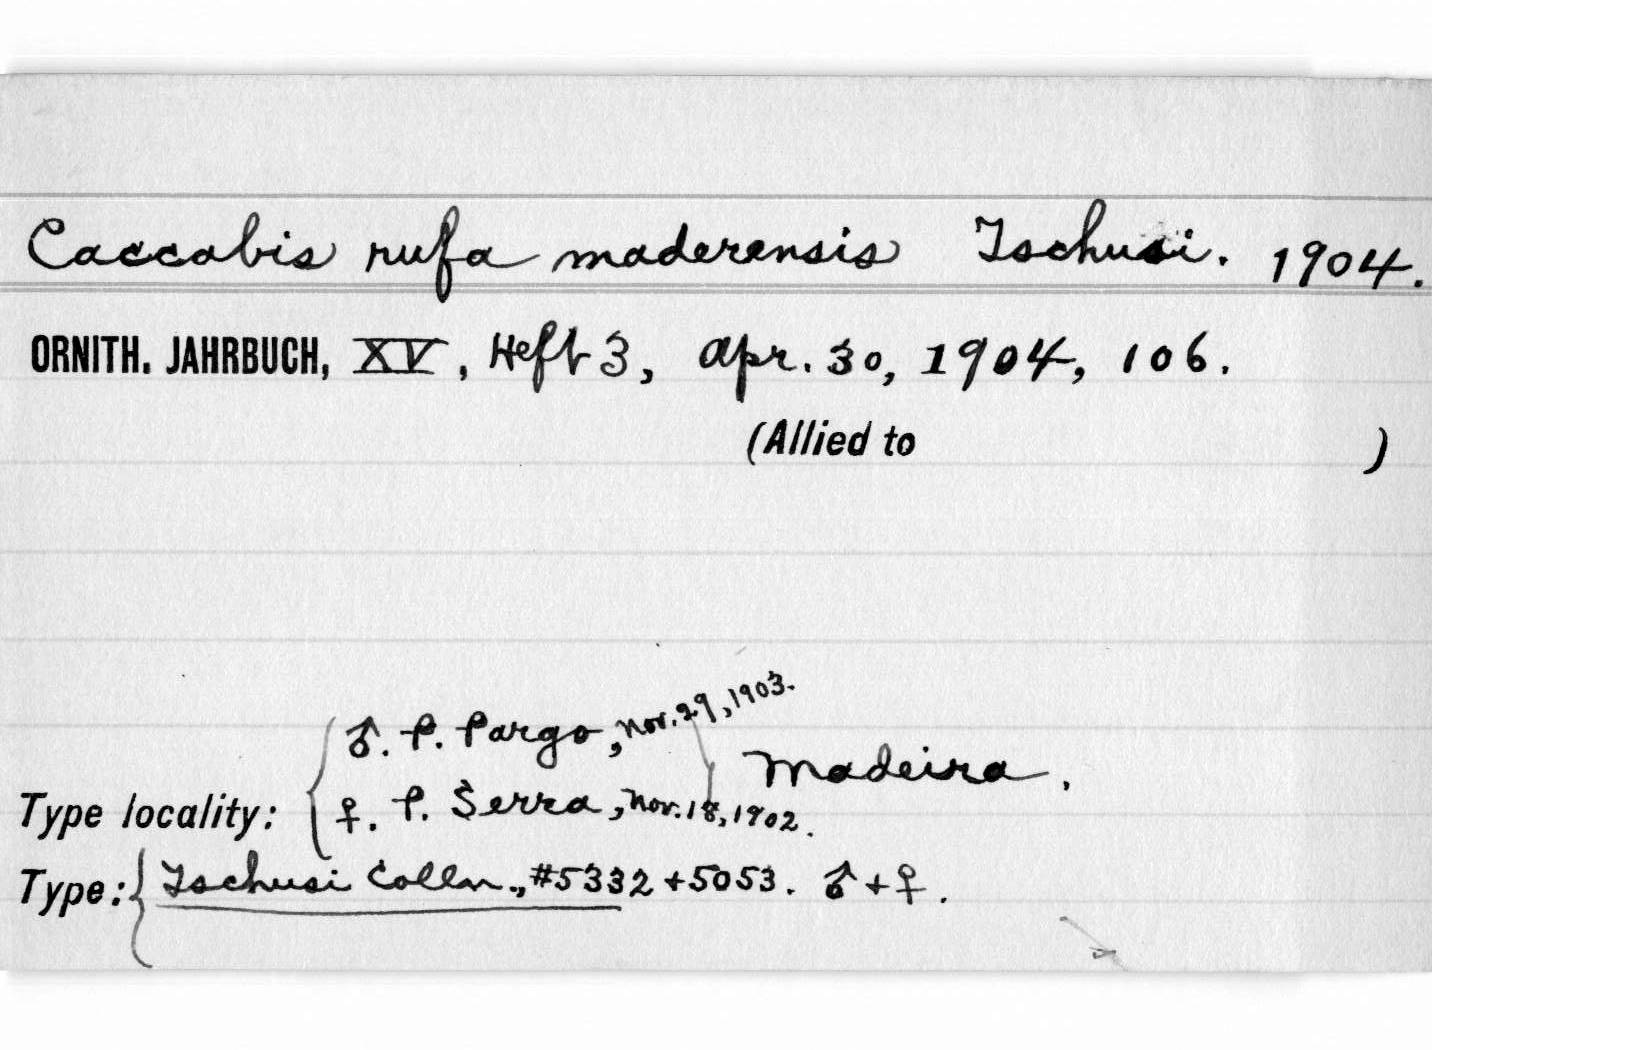 Caccabis rufa maderensis Tschusi. 1904.
ORNITH. JAHRBUCH, XV, Heft 3, Apr. 30, 1904, 106.
(Allied to )
♂. P. Pargo, Nov. 29, 1903.
Madeira.
Type locality: ♀. P. Serra, Nov. 18, 1902.
Type: Tschusi Colln., #5332 + 5053. ♂ + ♀.